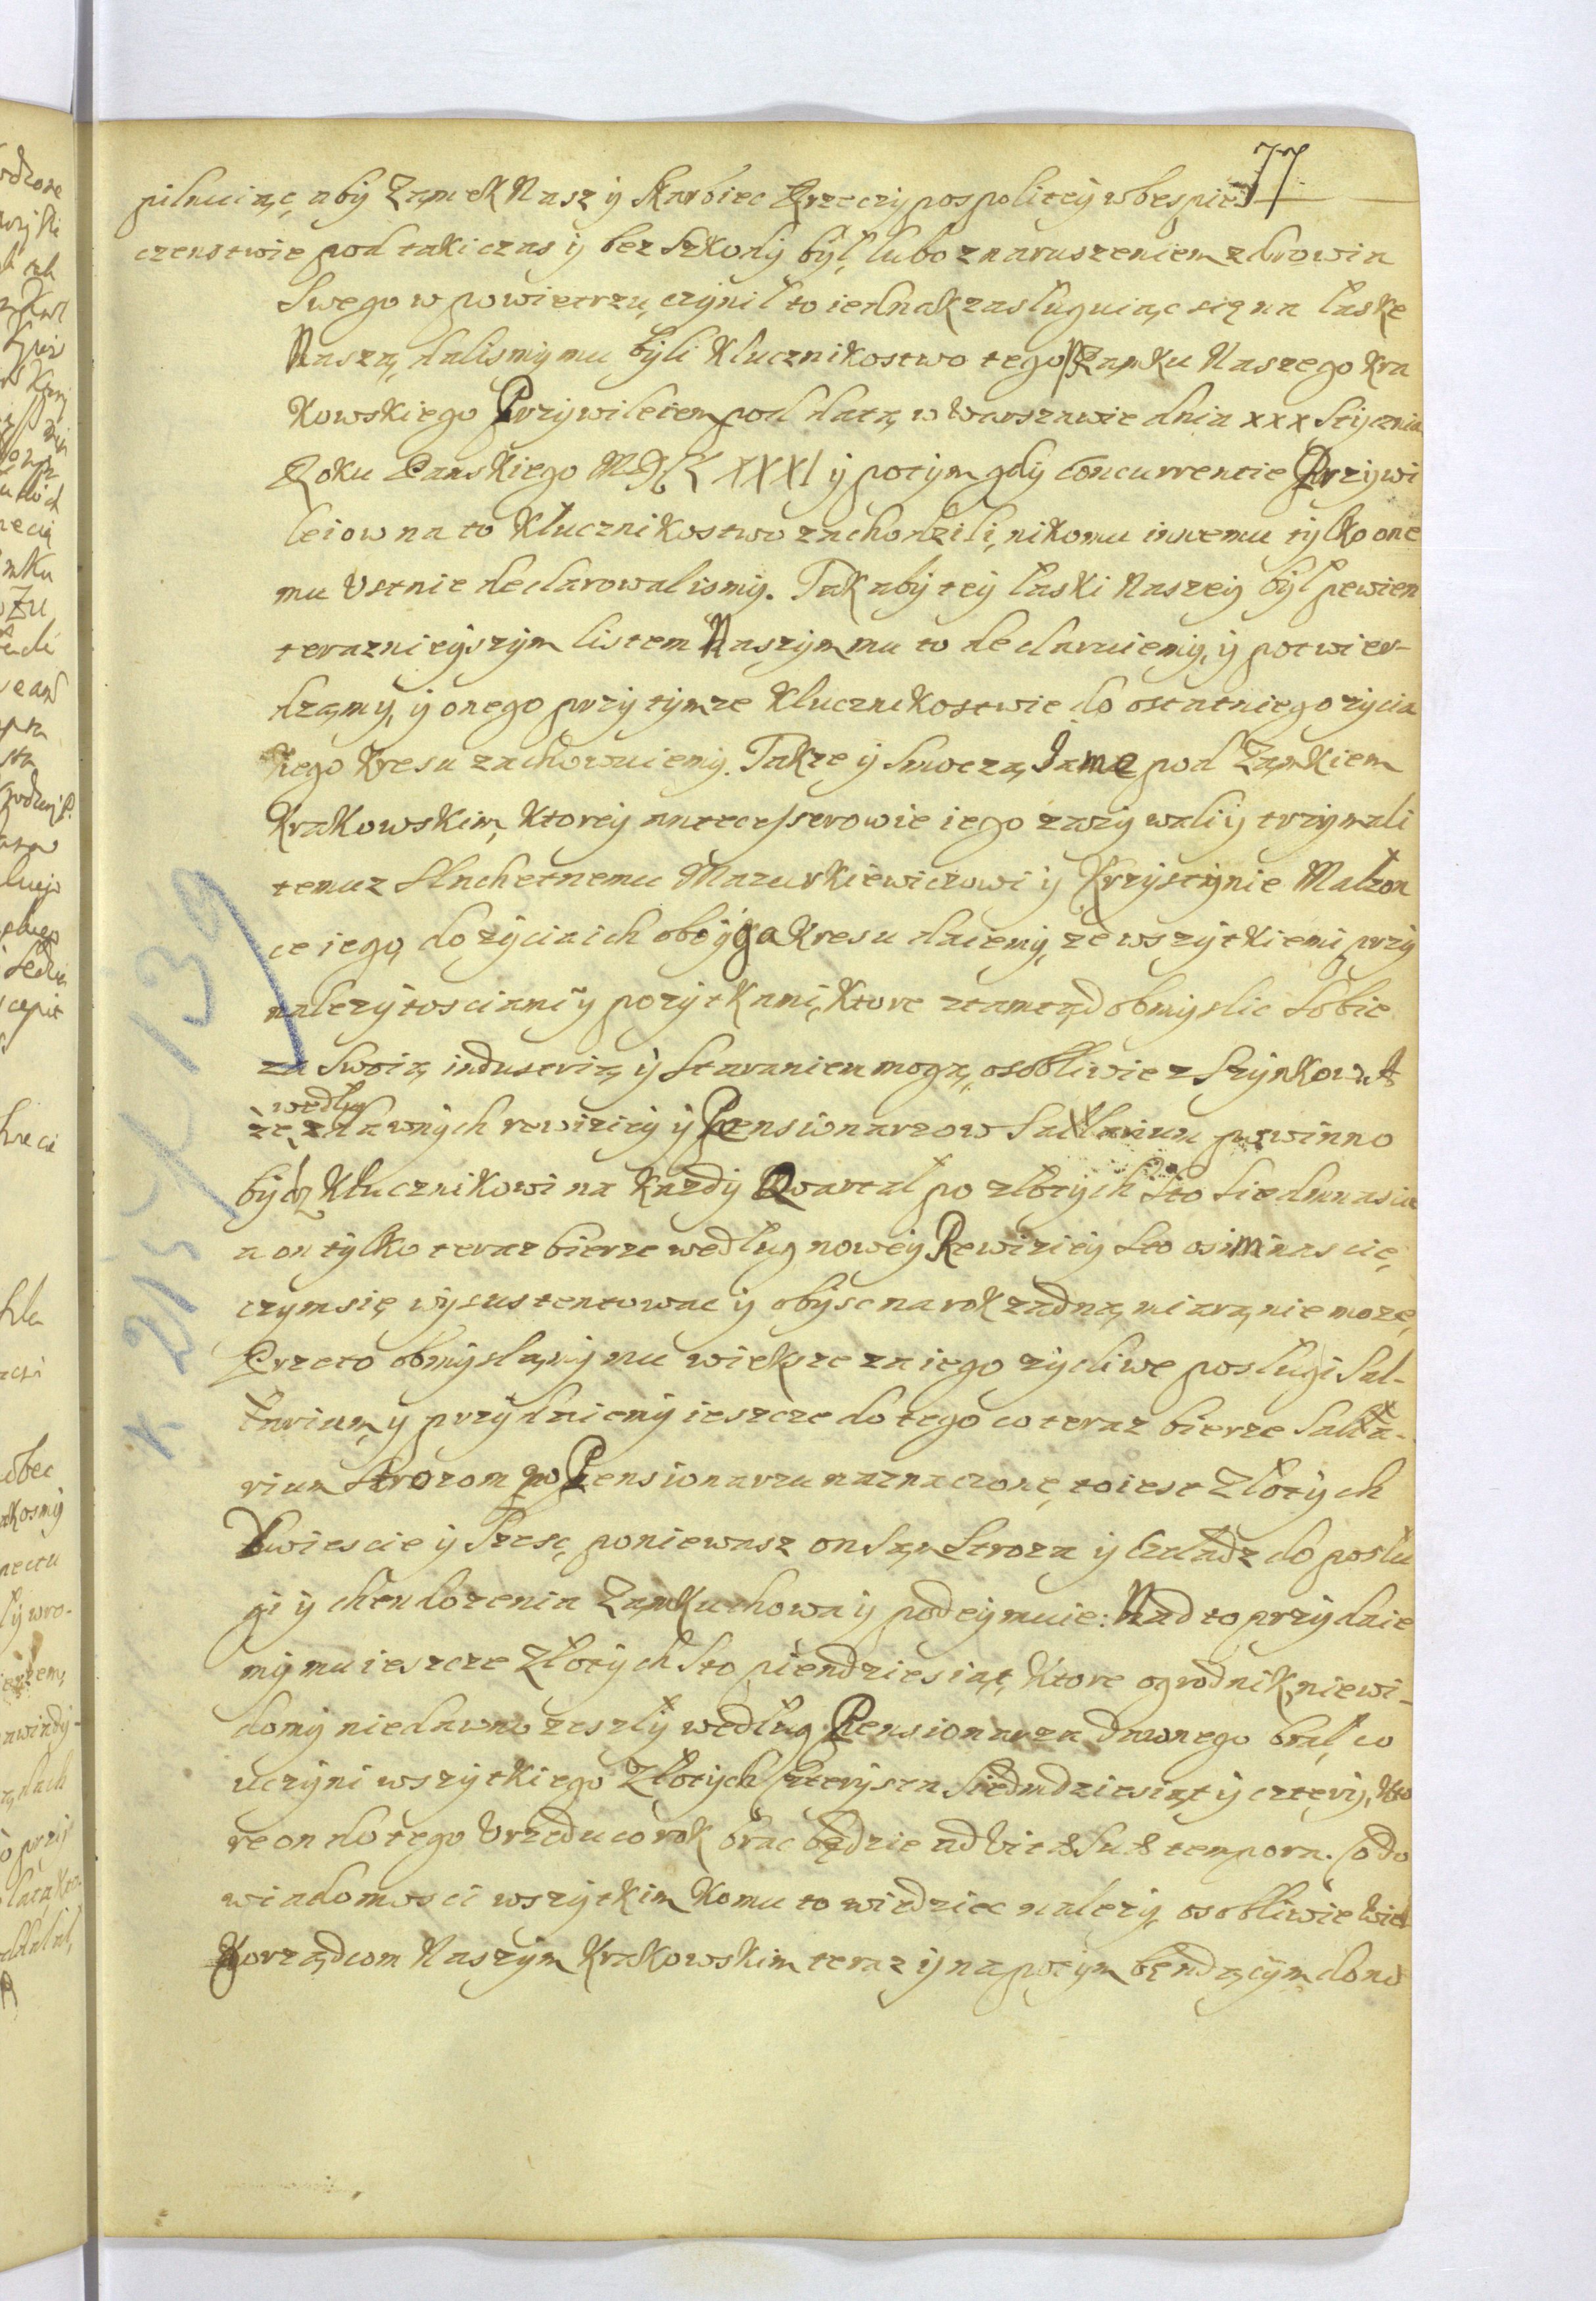 77
pilnuiąc, aby Zamek Nasz y Skarbiec Rzeczypospolitey w bespie-
czenstwie pod taki czas y bez Szkody był, lubo z naruszeniem zdrowia
Swego w powietrzu, czynił to iednak zasługuiąc się na łaskę
Naszą, dalismy mu byli Klucznikostwo tego Zamku Naszego Kra
kowskiego Przywileiem pod datą w Warszawie dnia xxx Stycznia
Roku Panskiego MDCLXXXI y potym gdy concurrentie Przywi
leiow na to Klucznikostwo zachodzili, nikomu innemu tylko one
mu Vstnie declarowalismy. Tak aby tey łaski Naszey był pewien
teraznieyszym listem Naszym mu to declaruiemy, y potwier-
dzamy, y onego przy tymze Klucznikostwie do ostatniego zycia
iego Kresu zachowuiemy. Takze y Smoczą Jamę pod Zamkiem
Krakowskim, Ktorey antecessorowie iego zazywali y trzymali
temuz Slachetnemu Mazurkiewiczowi y Krzystynie Małzon
ce iego, do zycia ich oboyga Kresu daiemy, ze wszytkiemi przy
nalezytosciami y pozytkami, Ktore ztamtąd obmyslic Sobie
za Swoią industrią y Staraniem mogą, osobliwie z Szynkow. A
według
ze z dawnych rewiziey y Pensionarzow Sallarium powinno
bydz Klucznikowi na Kazdy Qwartał po złotych Sto Siedmnascie
a on tylko teraz bierze według nowey Rewiziey Sto osimnascie,
czym się wysustentowac y obysc na rok zadną miarą nie moze,
Przeto obmyslamy mu większe za iego zycliwe posługi Sal-
larium, y przydaiemy ieszcze do tego co teraz bierze Salla-
rium Strozom po Pensionarzu naznaczone, to iest Złotych
Dwiescie y Szesc, poniewasz on Sam Stroza y Czeladz do posłu
gi y chendozenia Zamku chowa y podeymuie: Nad to przydaie
my mu ieszcze Złotych Sto piendziesiąt, Ktore ogrodnik niewi-
domy niedawno zeszły według Pensionarza dawnego brał, co
uczyni wszytkiego Złotych Czterysta Siedmdziesiąt y cztery, Kto
re on do tego Vrzędu co rok brac będzie ad Vitæ Suæ tempora. Co do
wiadomosci wszytkim Komu to wiedziec nalezy, osobliwie Wiel
Korządcom Naszym Krakowskim teraz y na potym będącym dono
k 215 / 139